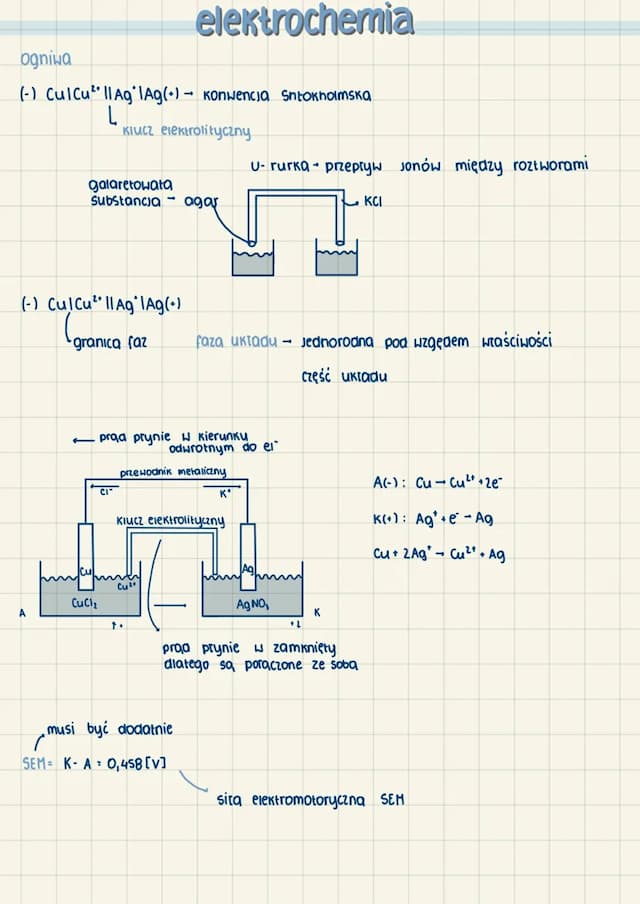 elektrochemia
ogniwa
(-) Cu|Cu²⁺||Ag⁺|Ag(+) → konwencja sntokholmska
klucz elektrolityczny
U-rurka → przepływ jonów między roztworami
galaretowata
substancja - agar
KCl
(-) Cu|Cu²⁺||Ag⁺|Ag(+)
granica faz
faza układu → jednorodna pod wzgędem właściwości
część układu
← prąd płynie w kierunku
odwrotnym do el⁻
przewodnik metaliczny
Cl⁻
K⁺
klucz elektrolityczny
Cu
Cu²⁺
Ag
CuCl₂
AgNO₃
A
K
prąd płynie w zamknięty
dlatego są połączone ze sobą
A(-): Cu → Cu²⁺ + 2e⁻
K(+): Ag⁺ + e⁻ → Ag
Cu + 2Ag⁺ → Cu²⁺ + Ag
musi być dodatnie
SEM = K - A = 0,458[V]
siła elektromotoryczna SEM